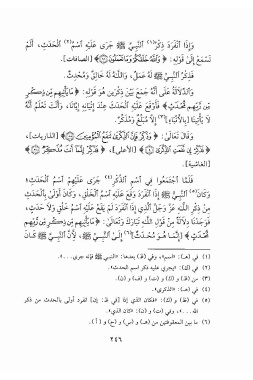 وَإِذَا انْفَرَدَ ذِكْرُ(١) النَّبِيِّ ﷺ جَرَى عَلَيْهِ اسْمُ(٢) الْحَدَثِ، أَلَمْ
تَسْمَعْ إِلَى قَوْلِهِ: ﴿وَاللَّهُ خَلَقَكُمْ وَمَا تَعْمَلُونَ﴾ [الصافات].
فَذِكْرُ النَّبِيِّ ﷺ لَهُ عَمَلٌ، وَاللَّهُ لَهُ خَالِقٌ وَمُحْدِثٌ.
وَالدَّلَالَةُ عَلَى أَنَّهُ جَمَعَ بَيْنَ ذِكْرَيْنِ هُوَ قَوْلُهُ: ﴿مَا يَأْتِيهِم مِّن ذِكْرٍ
مِّن رَّبِّهِم مُّحْدَثٍ﴾ فَأَوْقَعَ عَلَيْهِ الْحَدَثَ عِنْدَ إِتْيَانِهِ إِيَّانَا، وَأَنْتَ تَعْلَمُ أَنَّهُ
لَا يَأْتِينَا [بِالْأَنْبَاءِ](٣) إِلَّا مُبَلِّغٌ وَمُذَكِّرٌ.
وَقَالَ تَعَالَى: ﴿وَذَكِّرْ فَإِنَّ الذِّكْرَى تَنفَعُ الْمُؤْمِنِينَ﴾ [الذاريات]،
﴿فَذَكِّرْ إِن نَّفَعَتِ الذِّكْرَى﴾ [الأعلى]، ﴿فَذَكِّرْ إِنَّمَا أَنتَ مُذَكِّرٌ﴾
[الغاشية].
فَلَمَّا اجْتَمَعُوا فِي اسْمِ الذِّكْرِ(٤) جَرَى عَلَيْهِمُ اسْمُ الْحَدَثِ؛
وَكَانَ(٥) النَّبِيُّ ﷺ إِذَا انْفَرَدَ وَقَعَ عَلَيْهِ اسْمُ الْخَلْقِ، وَكَانَ أَوْلَى بِالْحَدَثِ
مِنْ ذِكْرِ اللَّهِ عَزَّ وَجَلَّ الَّذِي إِذَا انْفَرَدَ لَمْ يَقَعْ عَلَيْهِ اسْمُ خَلْقٍ وَلَا حَدَثٍ؛
فَوَجَدْنَا دِلَالَةً مِنْ قَوْلِ اللَّهِ تَبَارَكَ وَتَعَالَى: ﴿مَا يَأْتِيهِم مِّن ذِكْرٍ مِّن رَّبِّهِم
مُّحْدَثٍ﴾ [إِنَّمَا هُوَ مُحْدَثٌ](٦) إِلَى النَّبِيِّ ﷺ، لِأَنَّ النَّبِيَّ ﷺ كَانَ
(١) في (هـ): «اسم»، وفي (ظ) بعدها: «النبي ﷺ فإنه جرى...».
(٢) في (ك): «يجري عليه ذكر اسم الحدث».
(٣) من (ظ) و(ك) و(ت) و(ف) و(ن).
(٤) في (هـ): «الذكرى».
(٥) في (ظ) و(ك): «فكان الذي إذا [في ظ: إن] انفرد أولى بالحدث من ذكر
الله...»، وفي (ت) و(ن): «كان الذي».
(٦) ما بين المعقوفتين من (هـ) و(س) و(ح) و(أ).
٢٤٦